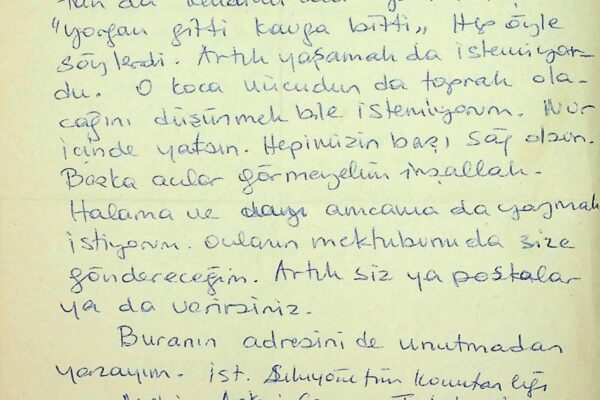 "yorgan gitti kavga bitti" Hep öyle
söylerdi. Artık yaşamak da istemiyor-
du. O koca vücudun da toprak ola-
cağını düşünmek bile istemiyorum. Nur
içinde yatsın. Hepimizin başı sağ olsun.
Başka acılar görmeyelim inşallah.
Halama ve amcama da yazmak
istiyorum. onların mektubunu da size
göndereceğim. Artık siz ya postalar
ya da verirsiniz.
Buranın adresini de unutmadan
yazayım. ist. Sıkıyönetim Komutanlığı